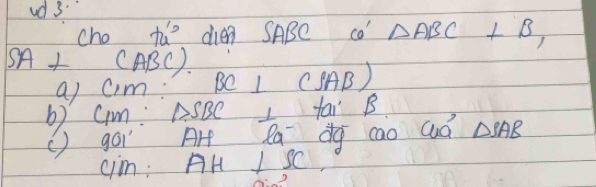 vd 3:
Cho tứ diện SABC có ΔABC ⊥ B,
SA ⊥ (ABC).
a) C/m: BC ⊥ (SAB)
b) C/m: ΔSBC ⊥ tại B
c) gọi AH là đg cao của ΔSAB
c/m: AH ⊥ SC.